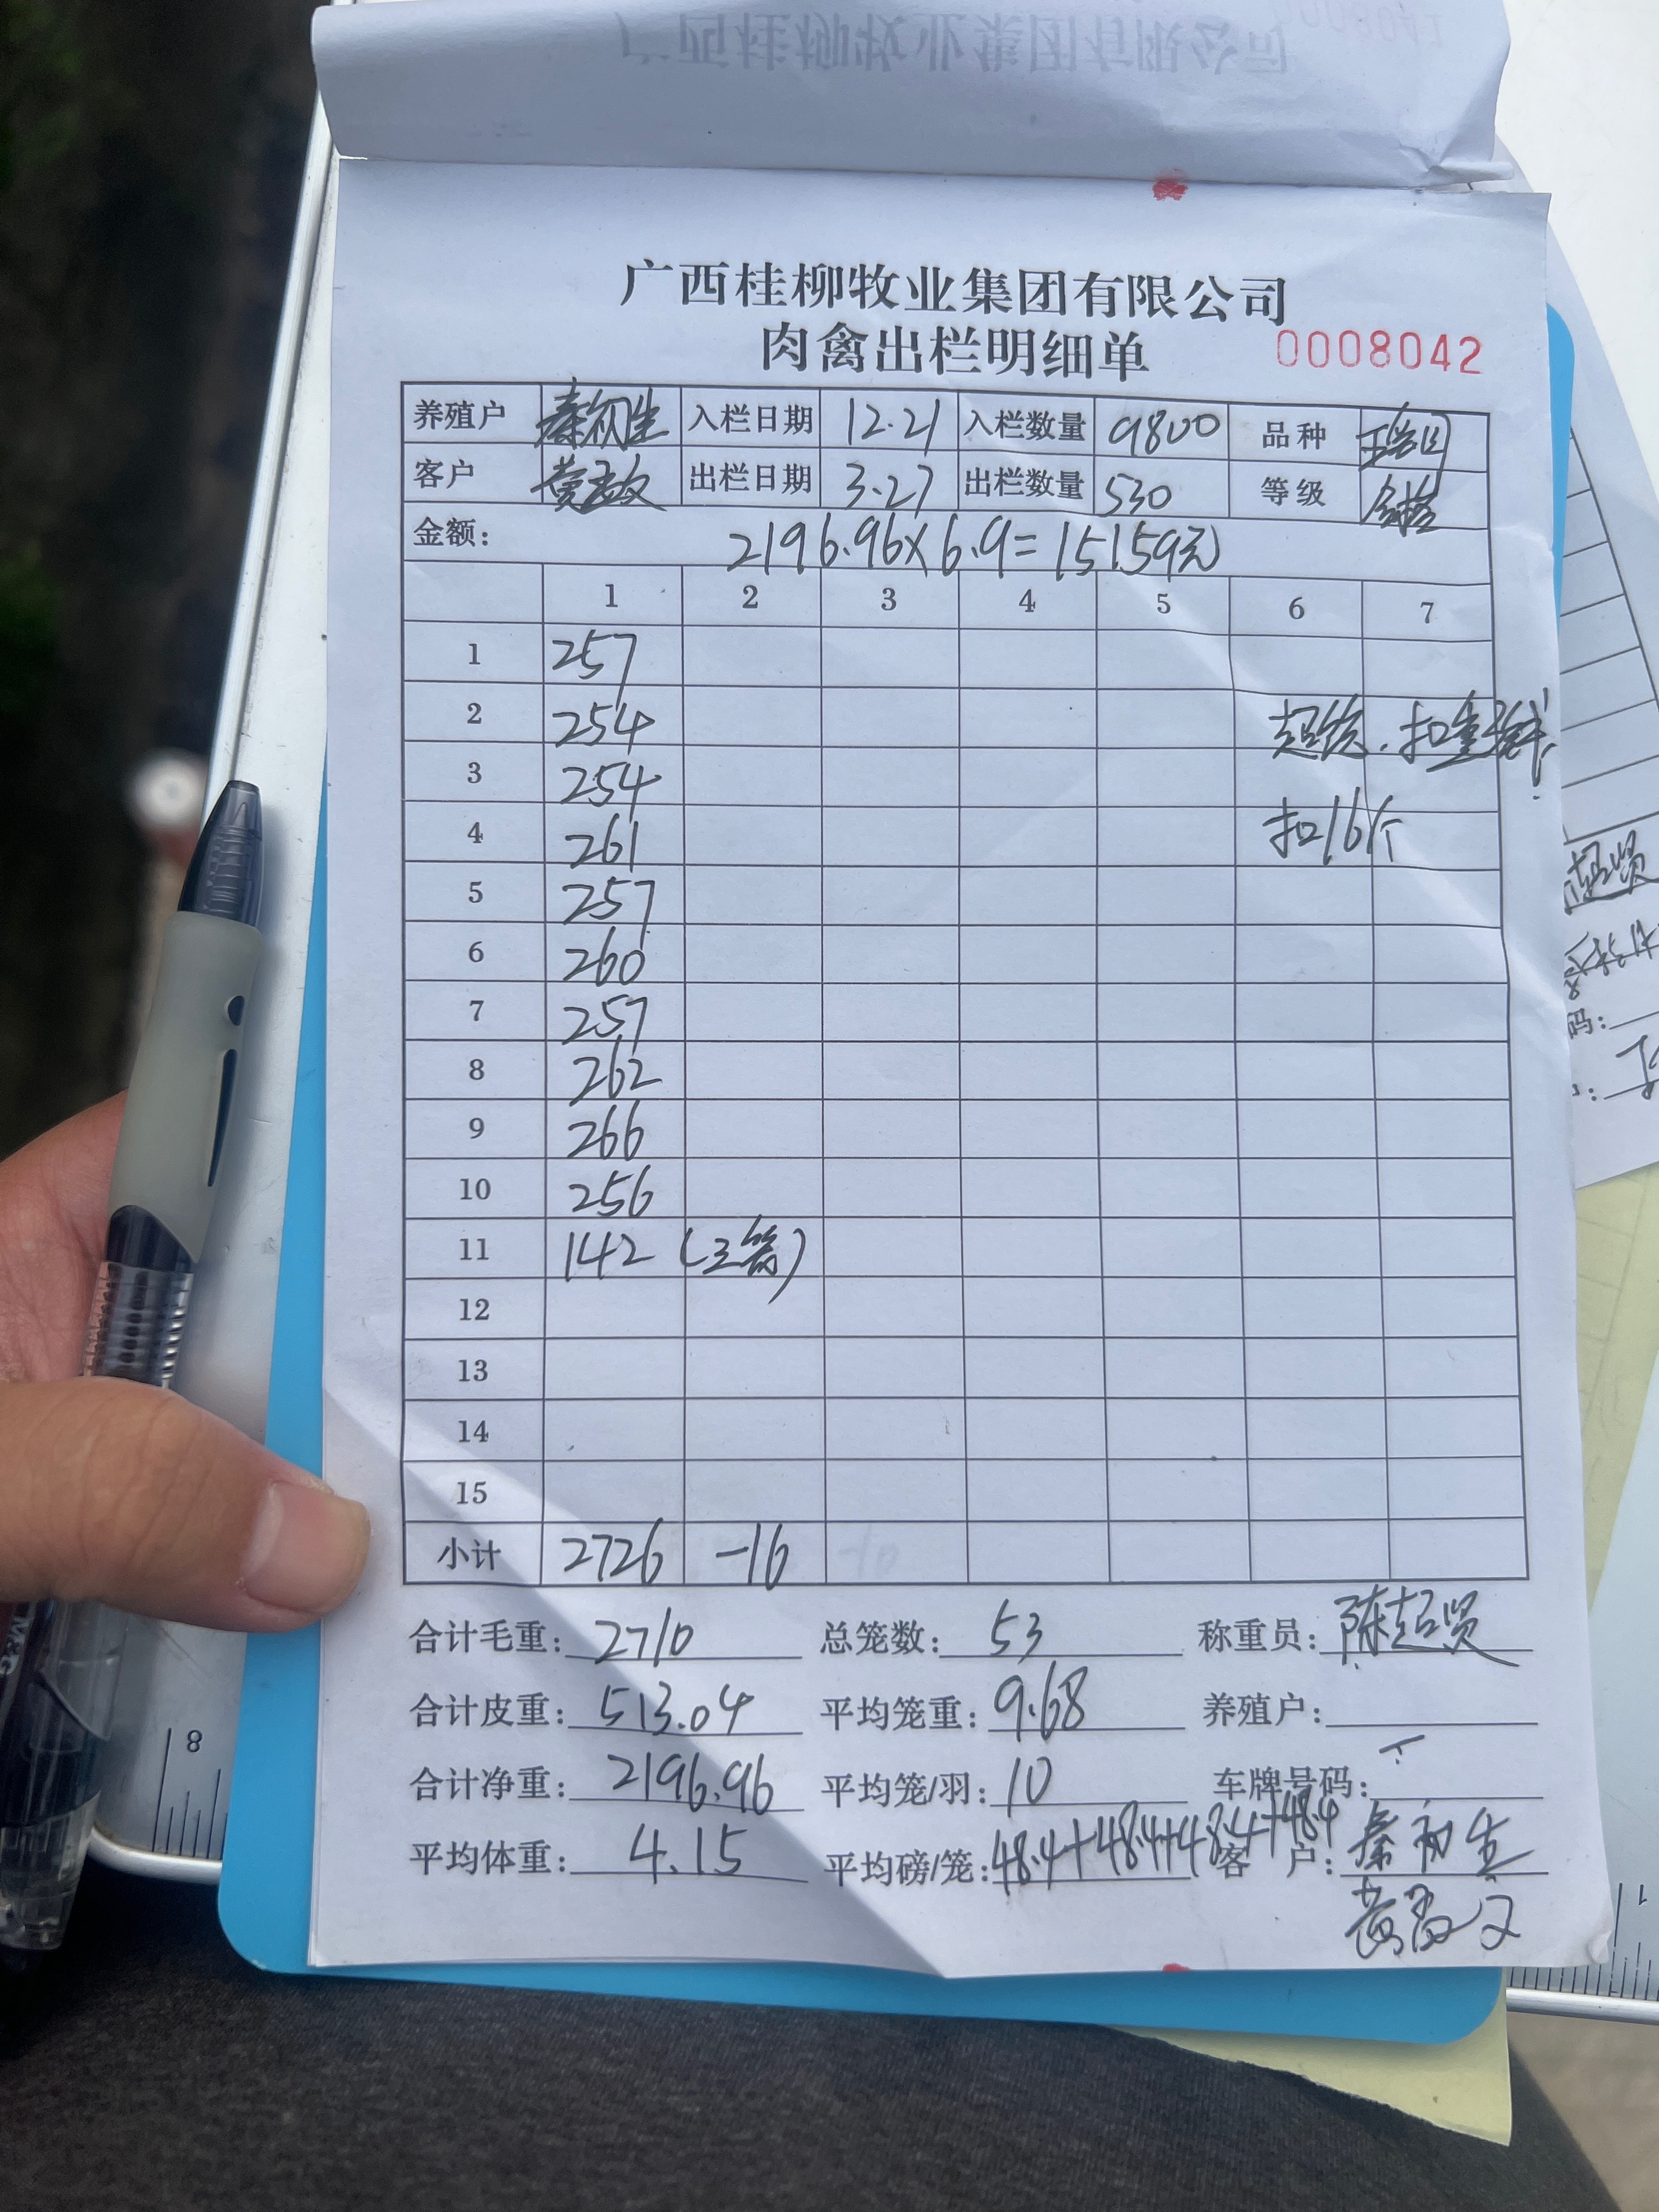 广西桂柳牧业集团有限公司
肉禽出栏明细单 0008042
养殖户 秦初生 入栏日期 12.21 入栏数量 9800 品种
客户 出栏日期 3.27 出栏数量 530 等级 合格
金额: 2196.96×6.9=15159元
1 2 3 4 5 6 7
1 257
2 254 扣重
3 254
4 261 扣16个
5 257
6 260
7 257
8 262
9 266
10 256
11 142 (三笼)
12
13
14
15
小计 2726 -16
合计毛重: 2710 总笼数: 53 称重员: 陈超贤
合计皮重: 513.04 平均笼重: 9.68 养殖户:
合计净重: 2196.96 平均笼/羽: 10 车牌号码:
平均体重: 4.15 平均磅/笼: 48.4+48.4+48.4+48.4 客户: 秦初生
8